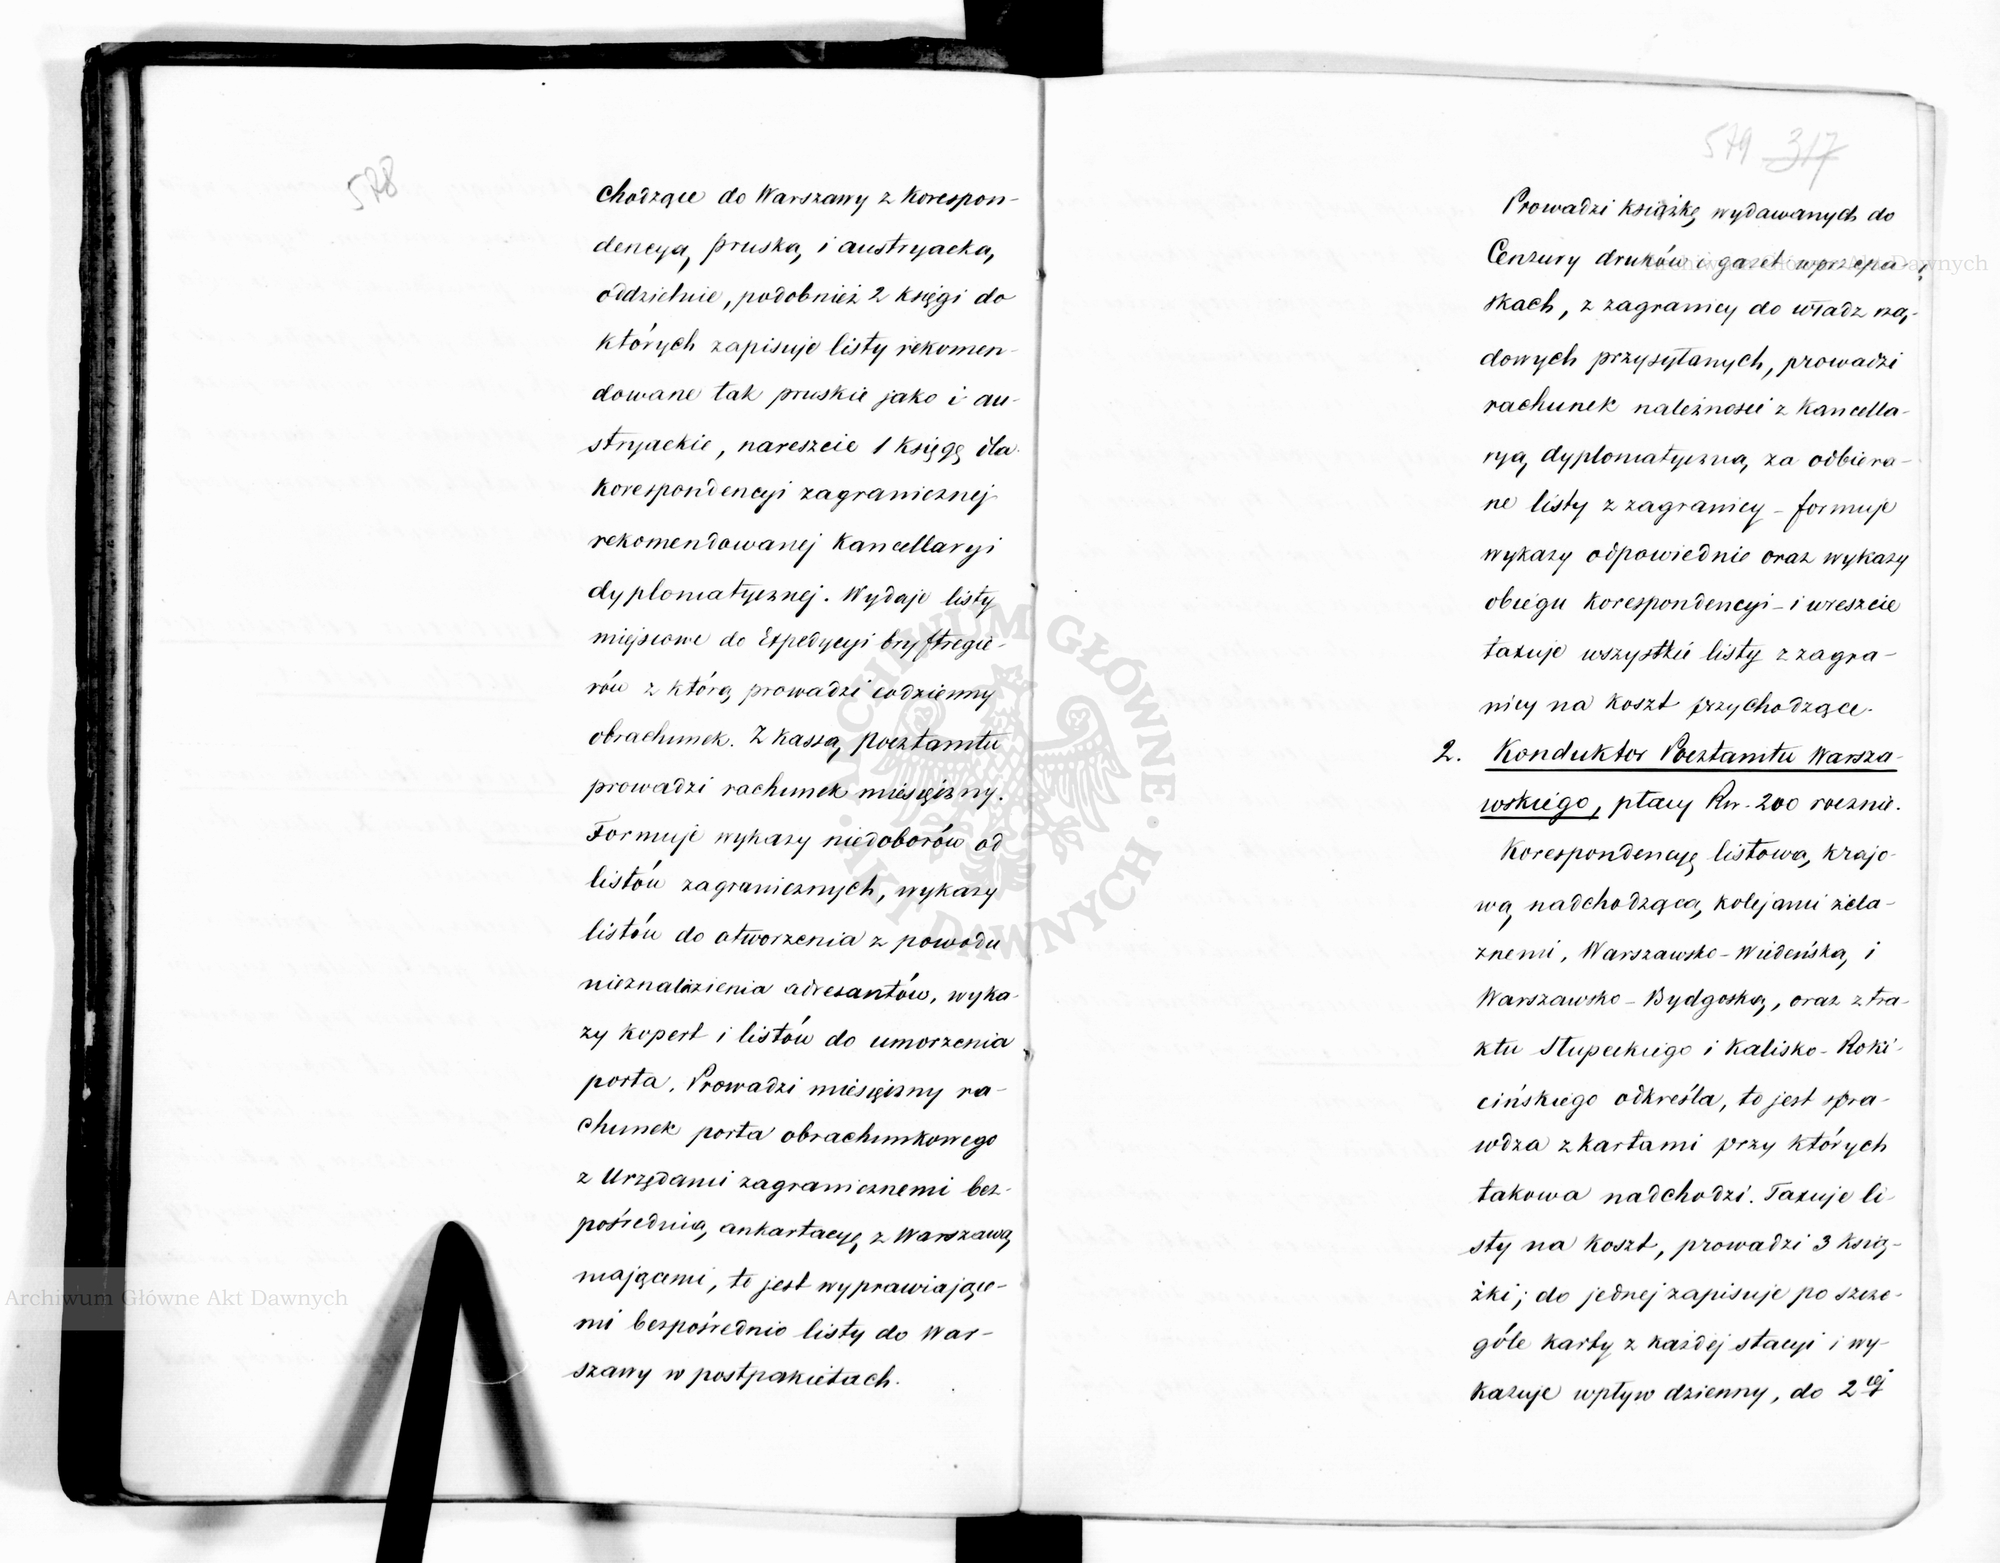 578
chodzące do Warszawy z korespon-
dencyą pruską i austryacką
oddzielnie, podobnież 2 księgi do
których zapisuje listy rekomen-
dowane tak pruskie jako i au-
stryackie, nareszcie 1 księgę dla
korespondencyi zagranicznej
rekomendowanej Kancellaryi
dyplomatycznej. Wydaje listy
miejscowe do Expedycyi bryftregie-
rów z którą prowadzi codzienny
obrachunek. Z kassą pocztamtu
prowadzi rachunek miesięczny.
Formuje wykazy niedoborów od
listów zagranicznych, wykazy
listów do otworzenia z powodu
nieznalezienia adresantów, wyka-
zy kopert i listów do umorzenia
porta. Prowadzi miesięczny ra-
chunek porta obrachunkowego
z Urzędami zagranicznemi bez-
pośrednią ankartacyę z Warszawą
mającemi, to jest wyprawiające-
mi bezpośrednio listy do War-
szawy w postpakietach.
579 317
Prowadzi książkę wydawanych do
Cenzury druków i gazet w przepa-
skach, z zagranicy do władz rzą-
dowych przysyłanych, prowadzi
rachunek należności z Kancella-
ryą dyplomatyczną za odbiera-
ne listy z zagranicy – formuje
wykazy odpowiednie oraz wykazy
obiegu korespondencyi – i wreszcie
taxuje wszystkie listy z zagra-
nicy na koszt przychodzące.
2. Konduktor Pocztamtu Warsza-
wskiego, płacy Rsr. 200 rocznie.
Korespondencyę listową krajo-
wą nadchodzącą kolejami żela-
znemi, Warszawsko-Wiedeńską i
Warszawsko-Bydgoską, oraz z tra-
ktu Słupeckiego i Kalisko-Roki-
cińskiego odkreśla, to jest spra-
wdza z kartami przy których
takowa nadchodzi. Taxuje li-
sty na koszt, prowadzi 3 ksią-
żki; do jednej zapisuje po szcze-
góle karty z każdej stacyi i wy-
kazuje wpływ dzienny, do 2ej
Archiwum Główne Akt Dawnych
ARCHIWUM GŁÓWNE AKT DAWNYCH